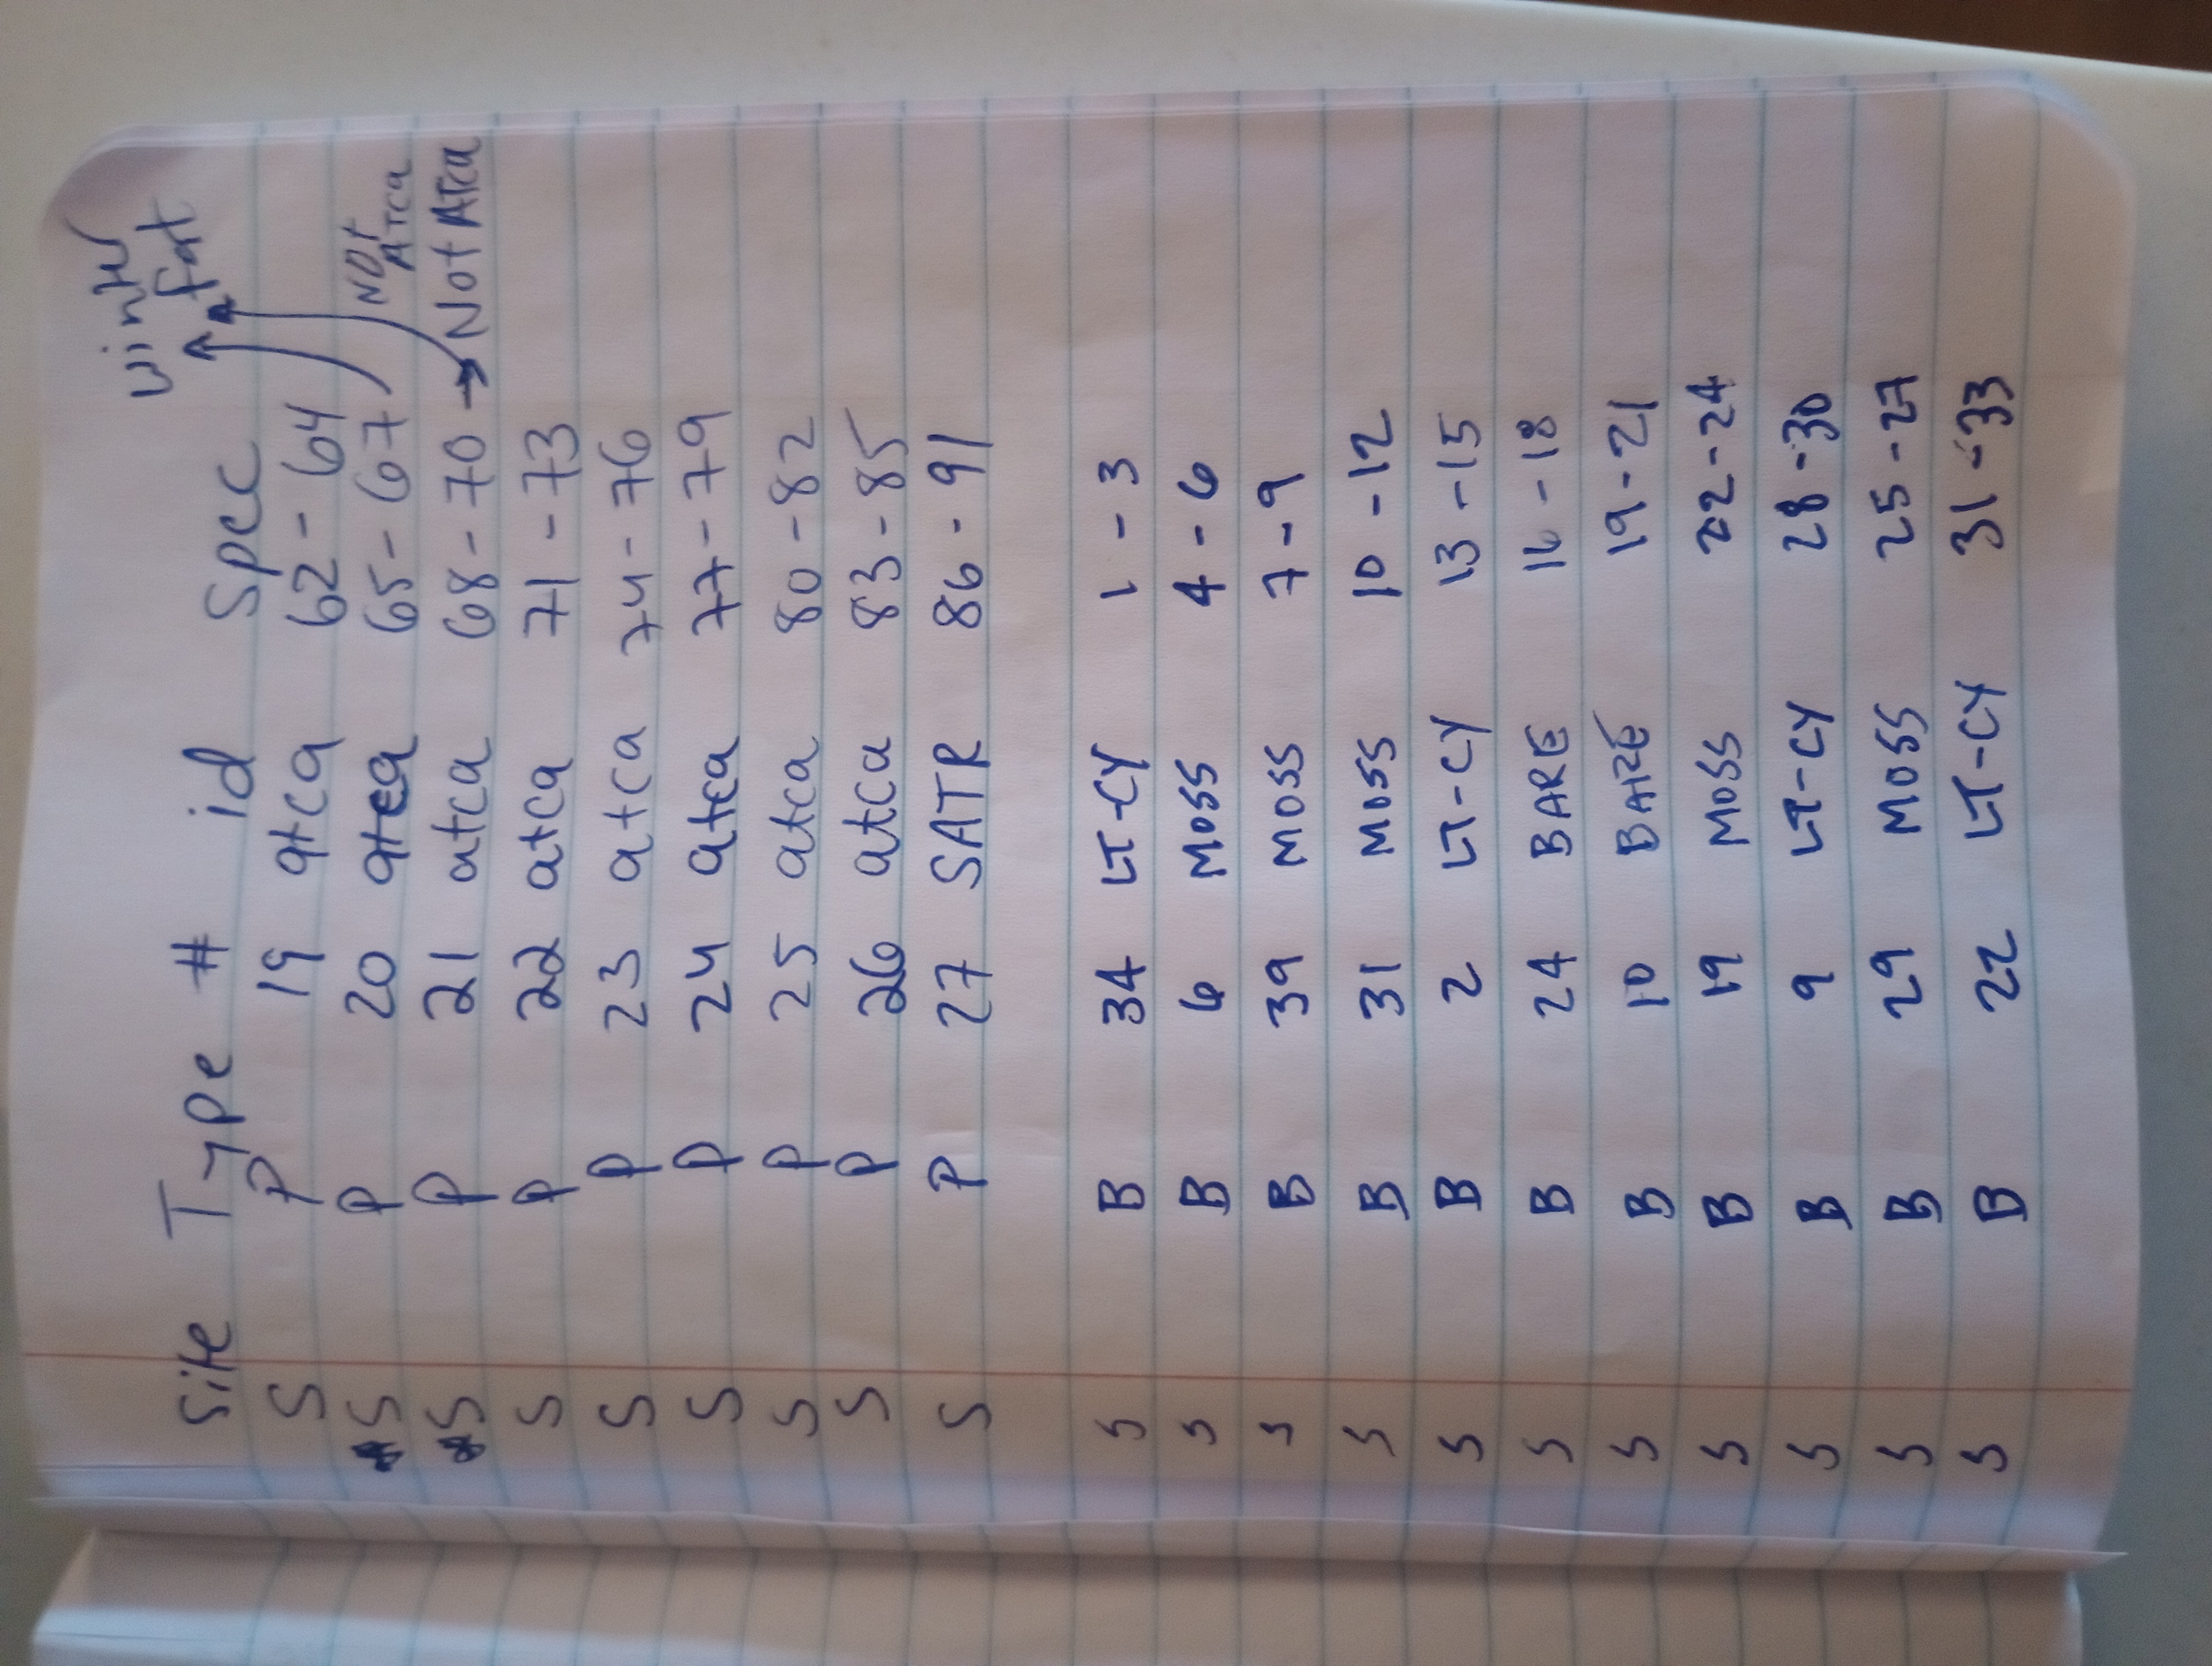 Winter
Fort
Site Type # id Spec
S P 19 atca 62-64
*S P 20 atca 65-67 NOT ATca
*S P 21 atca 68-70 → Not ATca
S P 22 atca 71-73
S P 23 atca 74-76
S P 24 atca 77-79
S P 25 atca 80-82
S P 26 atca 83-85
S P 27 SATR 86-91
S B 34 LT-CY 1-3
S B 6 MOSS 4-6
S B 39 MOSS 7-9
S B 31 MOSS 10-12
S B 2 LT-CY 13-15
S B 24 BARE 16-18
S B 10 BARE 19-21
S B 19 MOSS 22-24
S B 9 LT-CY 28-30
S B 29 MOSS 25-27
S B 22 LT-CY 31-33